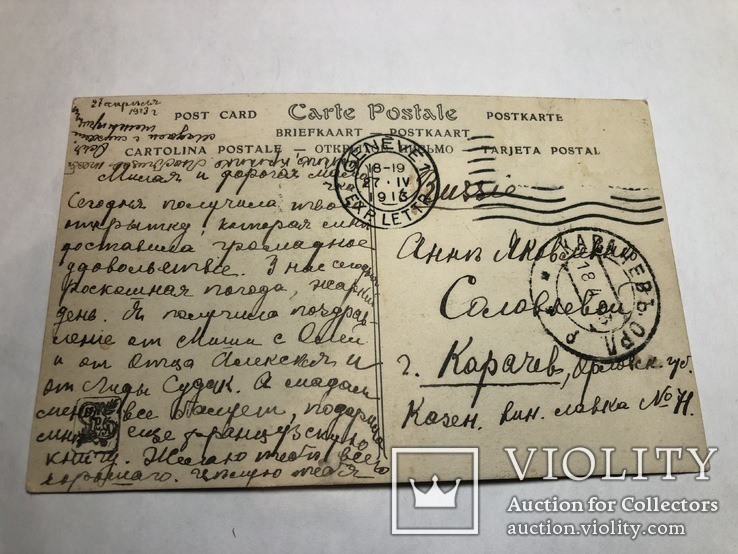 27 апреля
1913 г
POST CARD
Carte Postale
POSTKARTE
BRIEFKAART
POSTKAART
CARTOLINA POSTALE — ОТКРЫТОЕ ПИСЬМО — TARJETA POSTAL
GENEVE 1
18-19
27. IV
1913
EXP. LETTR.
Russie
Милая и дорогая
Сегодня получила твою
открытку, которая мне
доставила громадное
удовольствие. У нас сегодня
роскошная погода, жаркий
день. Я получила поздрав
ление от Миши с Олей
и от Отца Алексея и
от Лиды Судак. А мадам
меня все балует, подарила
мне еще французскую
книгу. Желаю тебе всего
хорошего. Целую тебя
Анне Яковлевне
Соловьевой
г. Карачев, Орловск. губ.
Казен. вин. лавка №
КАРАЧЕВЪ ОРЛ.
VIOLITY
Auction for Collectors
auction.violity.com